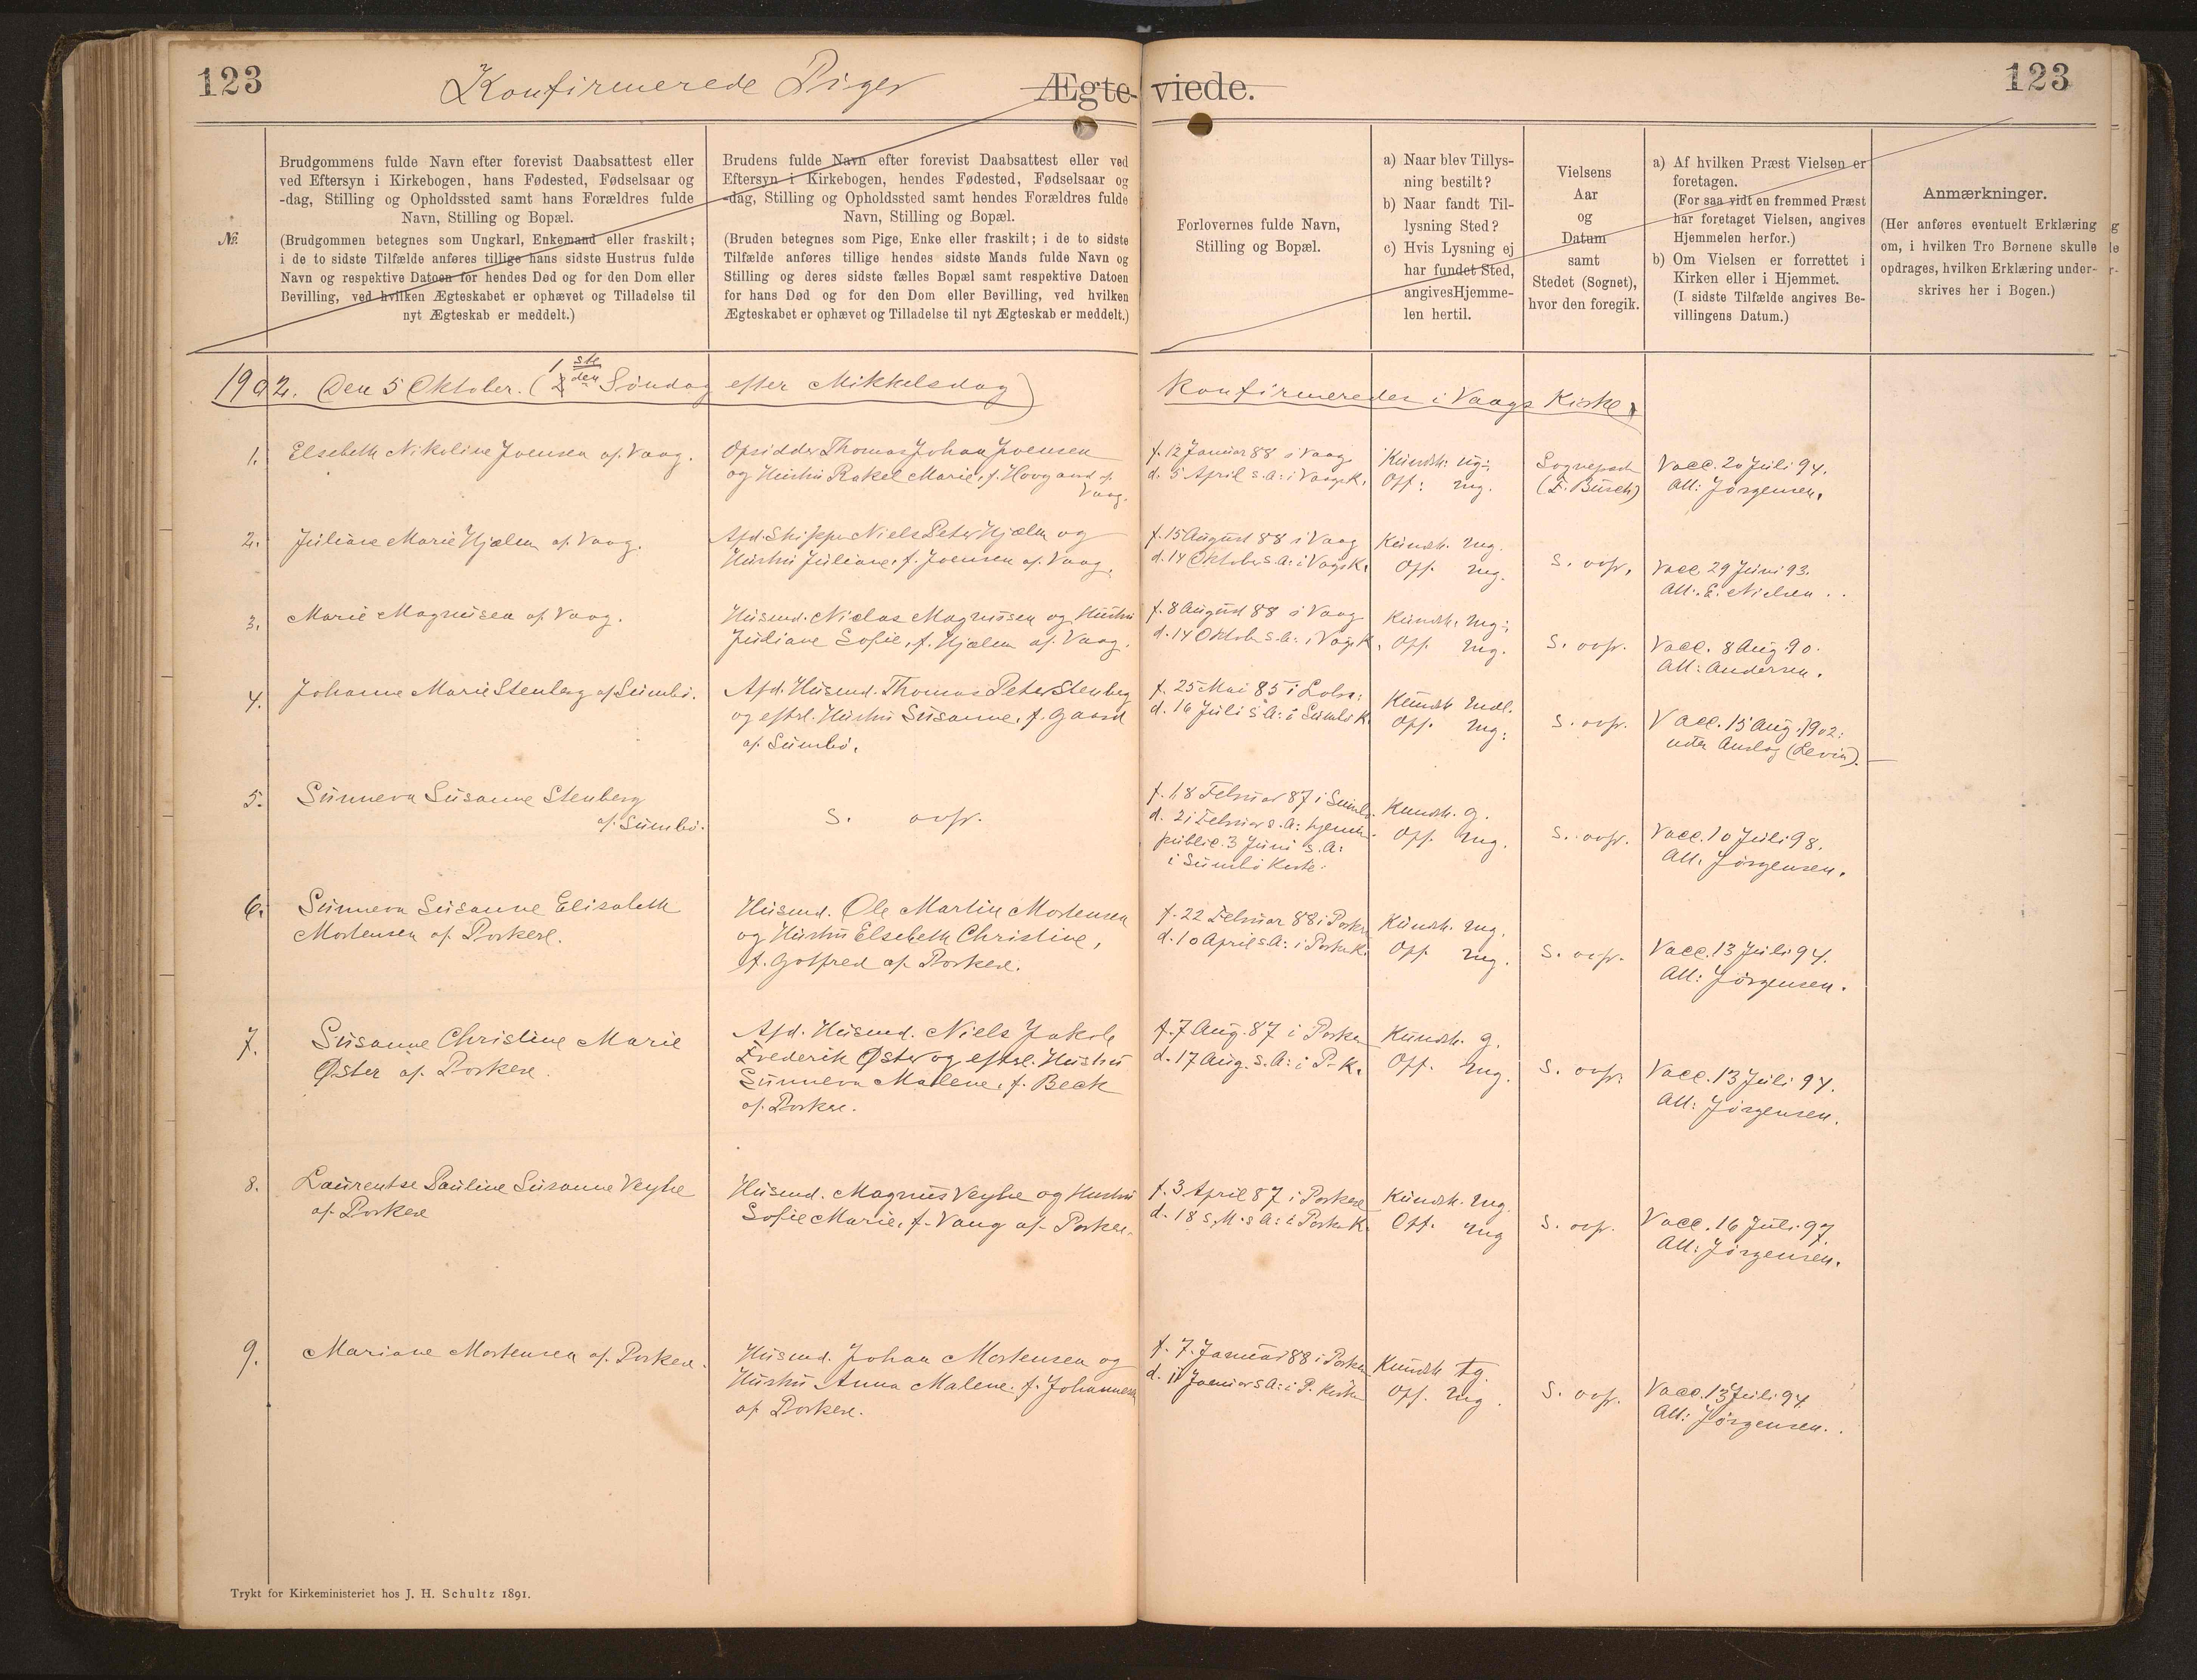 123
Konfirmerede Piger
Ægteviede.
123
№
Brudgommens fulde Navn efter forevist Daabsattest eller
ved Eftersyn i Kirkebogen, hans Fødested, Fødselsaar og
-dag, Stilling og Opholdssted samt hans Forældres fulde
Navn, Stilling og Bopæl.
(Brudgommen betegnes som Ungkarl, Enkemand eller fraskilt;
i de to sidste Tilfælde anføres tillige hans sidste Hustrus fulde
Navn og respektive Datoen for hendes Død og for den Dom eller
Bevilling, ved hvilken Ægteskabet er ophævet og Tilladelse til
nyt Ægteskab er meddelt.)
Brudens fulde Navn efter forevist Daabsattest eller ved
Eftersyn i Kirkebogen, hendes Fødested, Fødselsaar og
-dag, Stilling og Opholdssted samt hendes Forældres fulde
Navn, Stilling og Bopæl.
(Bruden betegnes som Pige, Enke eller fraskilt; i de to sidste
Tilfælde anføres tillige hendes sidste Mands fulde Navn og
Stilling og deres sidste fælles Bopæl samt respektive Datoen
for hans Død og for den Dom eller Bevilling, ved hvilken
Ægteskabet er ophævet og Tilladelse til nyt Ægteskab er meddelt.)
Forlovernes fulde Navn,
Stilling og Bopæl.
a) Naar blev Tillys-
ning bestilt?
b) Naar fandt Til-
lysning Sted?
c) Hvis Lysning ej
har fundet Sted,
angives Hjemme-
len hertil.
Vielsens
Aar
og
Datum
samt
Stedet (Sognet),
hvor den foregik.
a) Af hvilken Præst Vielsen er
foretagen.
(For saa vidt en fremmed Præst
har foretaget Vielsen, angives
Hjemmelen herfor.)
b) Om Vielsen er forrettet i
Kirken eller i Hjemmet.
(I sidste Tilfælde angives Be-
villingens Datum.)
Anmærkninger.
(Her anføres eventuelt Erklæring
om, i hvilken Tro Børnene skulle
opdrages, hvilken Erklæring under-
skrives her i Bogen.)
1902. Den 5 Oktober. (1ste Søndag efter Mikkelsdag) Konfirmeredes i Vaags Kirke
1. Elsebeth Nikoline Joensen af Vaag.
Opsidder Thomas Johan Joensen
og Hustru Rakel Marie, f. Hovgaard af
Vaag.
f. 12 Januar 88 i Vaag
d. 5 April s.A. i Vaags K.
Kundsk: ug÷
Opf: mg.
Sognepræst
(F. Busch)
Vacc. 20 Juli 94.
Att: Jørgensen.
2. Juliane Marie Hjelm af Vaag.
Afd. Skipper Niels Peter Hjelm og
Hustru Juliane, f. Joensen af Vaag.
f. 15 August 88 i Vaag
d. 14 Oktober s.A. i Vaags K.
Kundsk. mg.
Opf. mg.
s. ovfr.
Vacc. 29 Juni 93.
Att. E. Nielsen.
3. Marie Magnusen af Vaag.
Husmd. Niclas Magnusen og Hustru
Juliane Sofie, f. Hjelm af Vaag.
f. 8 August 88 i Vaag
d. 14 Oktob. s.A. i Vags K.
Kundsk. mg÷
Opf. mg.
s. ovfr.
Vacc. 8 Aug. 90.
Att: Andersen.
4. Johanne Marie Stenberg af Sumbø.
Afd. Husmd. Thomas Peter Stenberg
og eftrl. Hustru Susanne, f. Gaard
af Sumbø.
f. 25 Mai 85 i
d. 16 Juli s.A. i Sumbø K.
Kundsk. mdl.
Opf. mg.
s. ovfr.
Vacc. 15 Aug. 1902:
uden Anslag (Levin).
5. Sunneva Susanne Stenberg
af Sumbø.
s. ovfr.
f. 18 Februar 87 i Sumbø
d. 21 Februar s.A. hjemme
public. 3 Juni s.A:
i Sumbø Kirke.
Kundsk. g.
Opf. mg.
s. ovfr.
Vacc. 10 Juli 98.
Att. Jørgensen.
6. Sunneva Susanne Elisabeth
Mortensen af Porkere.
Husmd. Ole Martin Mortensen
og Hustru Elsebeth Christine,
f. Gotfred af Porkere.
f. 22 Februar 88 i Porkere
d. 10 April s.A. i Porkere K.
Kundsk. mg.
Opf. mg.
s. ovfr.
Vacc. 13 Juli 94.
Att: Jørgensen.
7. Susanne Christine Marie
Øster af Porkere.
Afd. Husmd. Niels Jakob
Frederik Øster og eftrl. Hustru
Sunneva Malene, f. Beck
af Porkere.
f. 7 Aug. 87 i Porkere
d. 17 Aug. s.A. i P. K.
Kundsk. g.
Opf. mg.
s. ovfr.
Vacc. 13 Juli 94.
Att: Jørgensen.
8. Laurentse Pauline Susanne Veyhe
af Porkere
Husmd. Magnus Veyhe og Hustru
Sofie Marie, f. Vang af Porkere.
f. 3 April 87 i Porkere
d. 18 s.M. s.A. i Porkere K.
Kundsk. mg.
Opf. mg
s. ovfr.
Vacc. 16 Juli 97.
Att: Jørgensen.
9. Mariane Mortensen af Porkere.
Husmd. Johan Mortensen og
Hustru Anna Malene, f. Johannesen
af Porkere.
f. 7. Januar 88 i Porkere
d. 11 Januar s.A. i P. Kirke
Kundsk. tg.
Opf. mg.
s. ovfr.
Vacc. 13 Juli 94
Att: Jørgensen.
Trykt for Kirkeministeriet hos J. H. Schultz 1891.